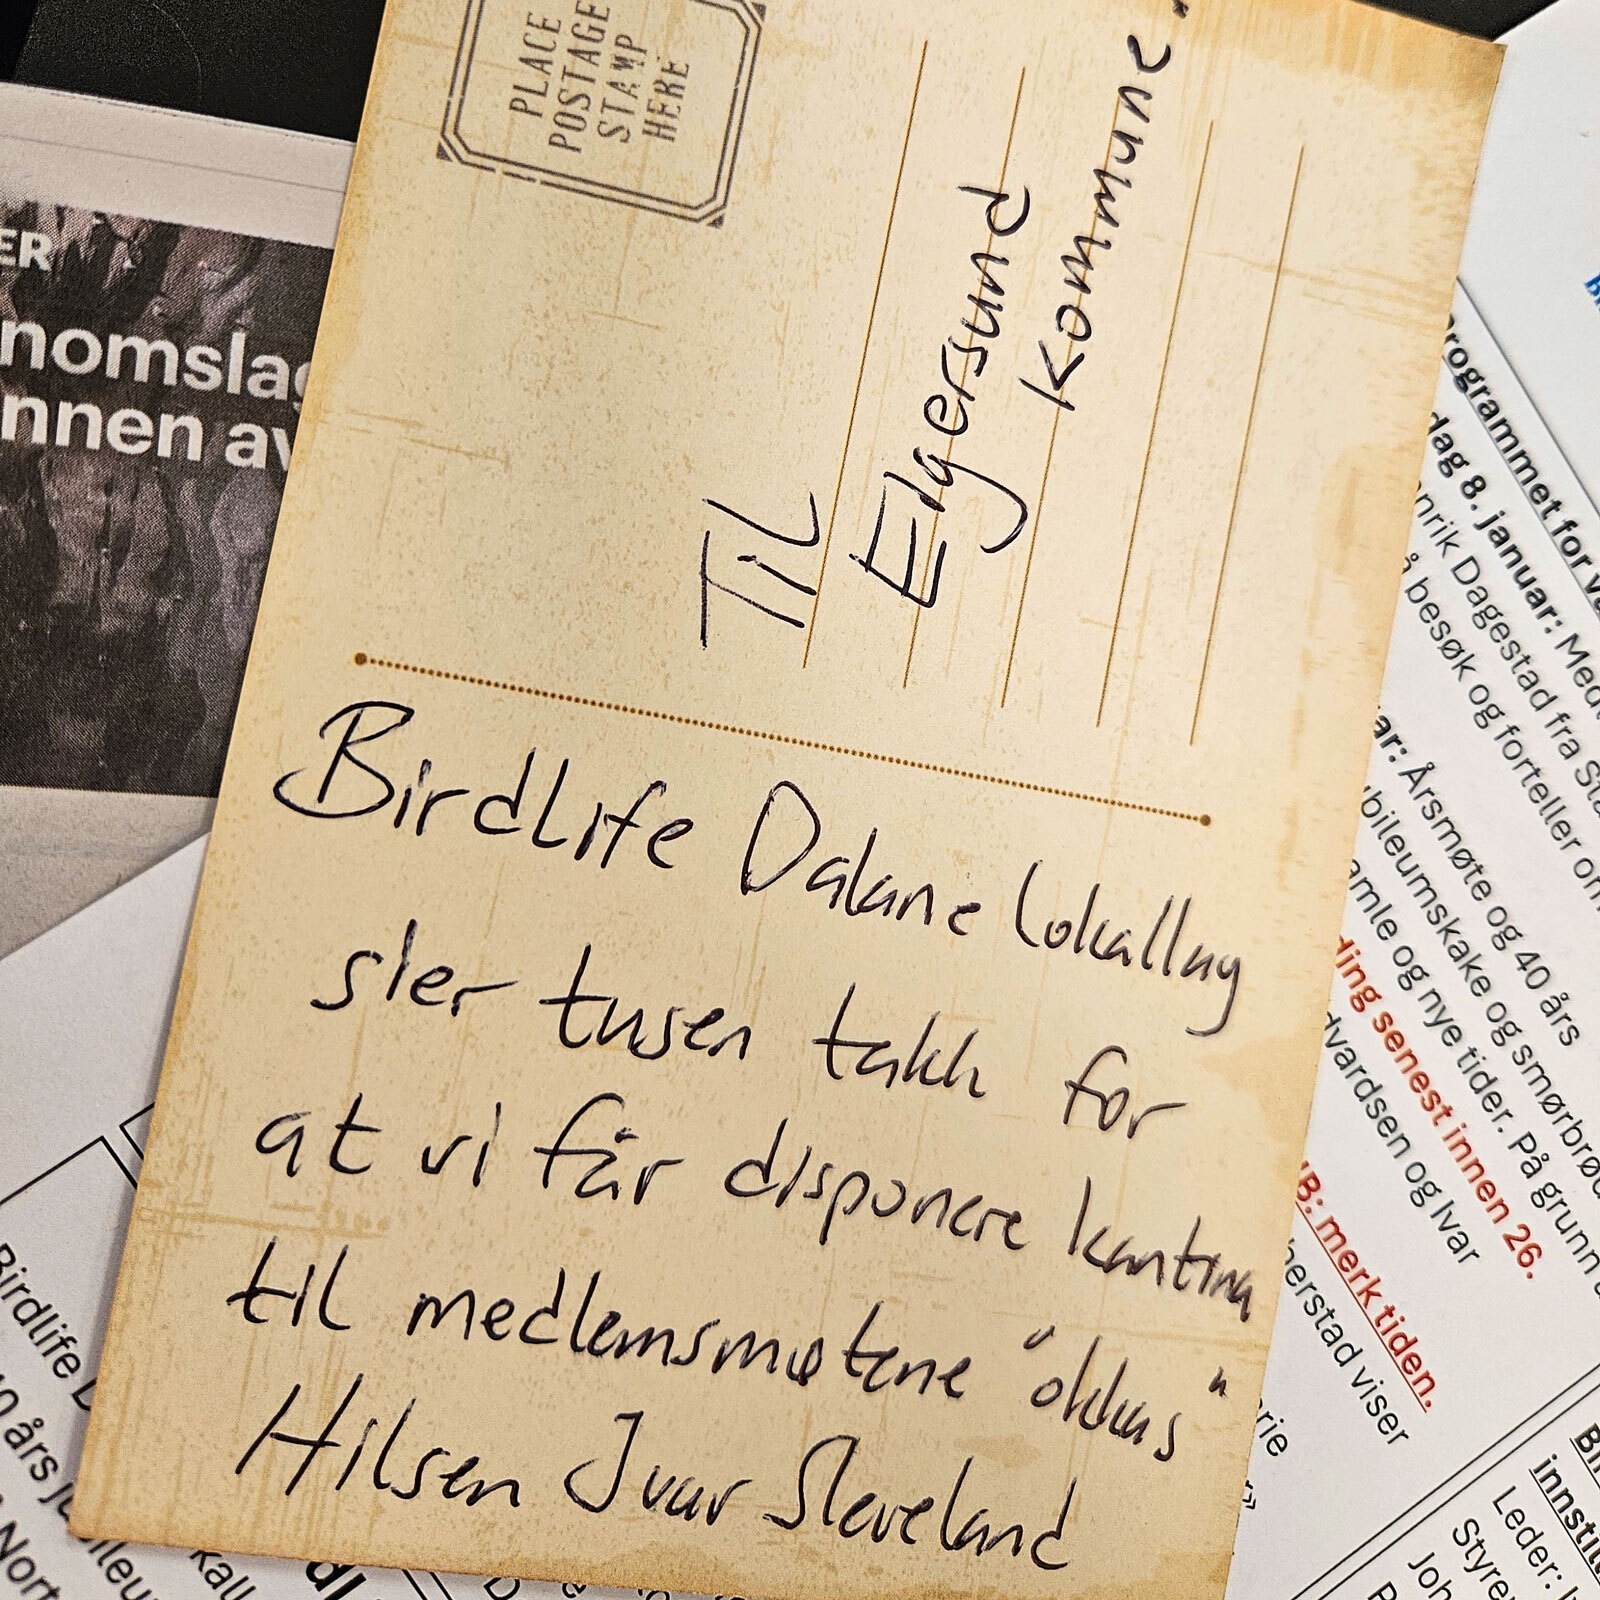 PLACE
POSTAGE
STAMP
HERE
Til
Eigersund
Kommune.
Birdlife Dalane lokallag
sier tusen takk for
at vi får disponere kantina
til medlemsmøtene "okkas"
Hilsen Ivar Sleveland
ER
nomslag
nnen av
rogrammet for v
dag 8. januar: Med
nrik Dagestad fra Sta
å besøk og forteller om
ar: Årsmøte og 40 års
bileumskake og smørbrød
amle og nye tider. På grunn
ding senest innen 26.
dvardsen og Ivar
NB: merk tiden.
berstad viser
rie
innstil
Leder: I
Styre
Joh
Birdlife D
40 års ju
Nort
ileu
kall